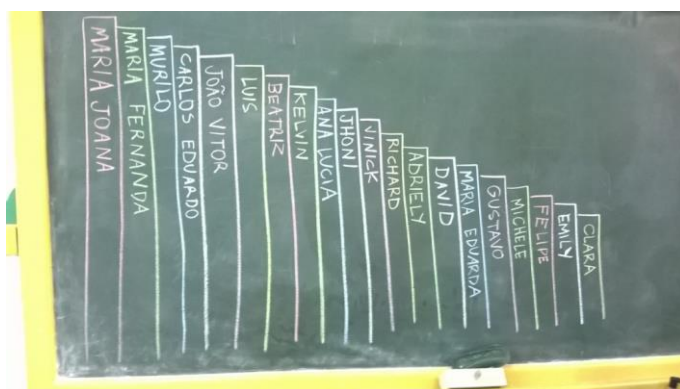 MARIA JOANA
MARIA FERNANDA
MURILO
CARLOS EDUARDO
JOÃO VITOR
LUIS
BEATRIZ
KELVIN
ANA LUCIA
JHONI
VINICK
RICHARD
ADRIELY
DAVID
MARIA EDUARDA
GUSTAVO
MICHELE
FELIPE
EMILY
CLARA